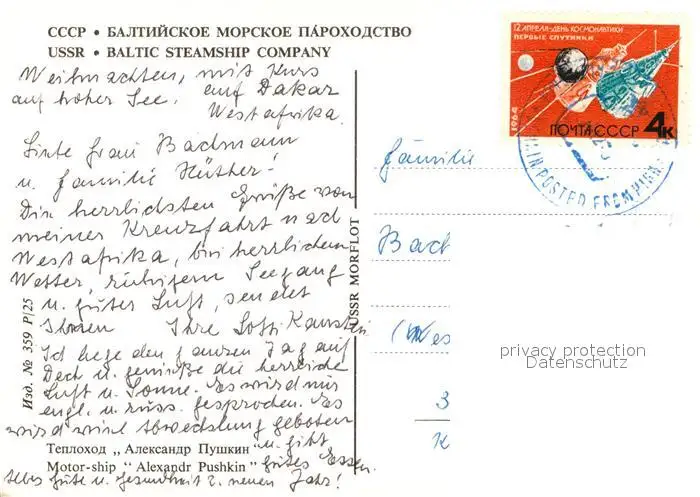 СССР • БАЛТИЙСКОЕ МОРСКОЕ ПАРОХОДСТВО
USSR • BALTIC STEAMSHIP COMPANY
Weihnachten, mit Kurs
auf hoher See. auf Dakar
Westafrika.
Liebe Frau Bachmann
u. Familie Hüther!
Die herrlichsten Grüße von
meiner Kreuzfahrt nach
Westafrika, bei herrlichem
Wetter, ruhigem Seegang
u. guter Luft, sendet
Ihnen Ihre Lotti
Ich liege den ganzen Tag auf
Deck u. genieße die herrliche
Luft u. Sonne. Es wird nur
engl. u. russ. gesprochen. Es
wird viel Abwechslung geboten
u. gibt
gutes Essen.
Alles Gute u. Gesundheit z. neuen Jahr!
Теплоход „Александр Пушкин“
Motor-ship “Alexandr Pushkin”
Изд. № 359 Р/25
USSR MORFLOT
12 АПРЕЛЯ-ДЕНЬ КОСМОНАВТИКИ
ПЕРВЫЕ СПУТНИКИ
1964
ПОЧТА СССР 4к
POSTED FROM HIGH
Familie
Bach
(Wes
3
K
privacy protection
Datenschutz